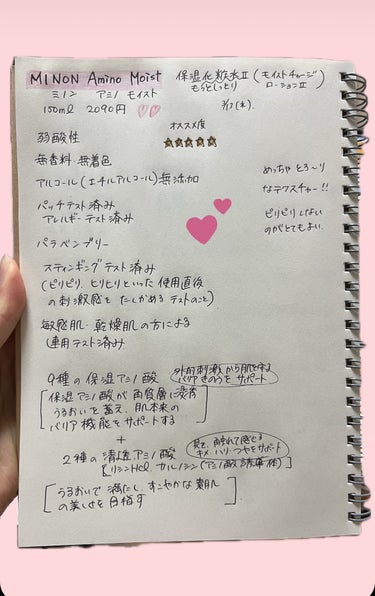 MINON Amino Moist 保湿化粧水Ⅱ (モイストチャージ ローションⅡ)
ミノン アミノ モイスト もっとしっとり
150ml 2090円
オススメ度
弱酸性
無香料・無着色
アルコール(エチルアルコール)無添加
めっちゃ とろ〜り
なテクスチャー!!
ピリピリしない
のがとてもよい.
パッチテスト済み
アレルギーテスト済み
パラベンフリー
スティンギングテスト済み
(ピリピリ、ヒリヒリといった使用直後
の刺激感を たしかめる テストのこと)
敏感肌・乾燥肌の方による
連用テスト済み
9種の保湿アミノ酸 外的刺激から肌を守る
バリアきのうをサポート
保湿アミノ酸が角質層に浸透
うるおいを蓄え、肌本来の
バリア機能をサポートする
+
2種の清透アミノ酸 見て、触れて感じる
キメ・ハリ・つやをサポート
[リシンHCl カルノシン(アミノ酸誘導体)]
うるおいで満たし、すこやかな素肌
の美しさを目指す